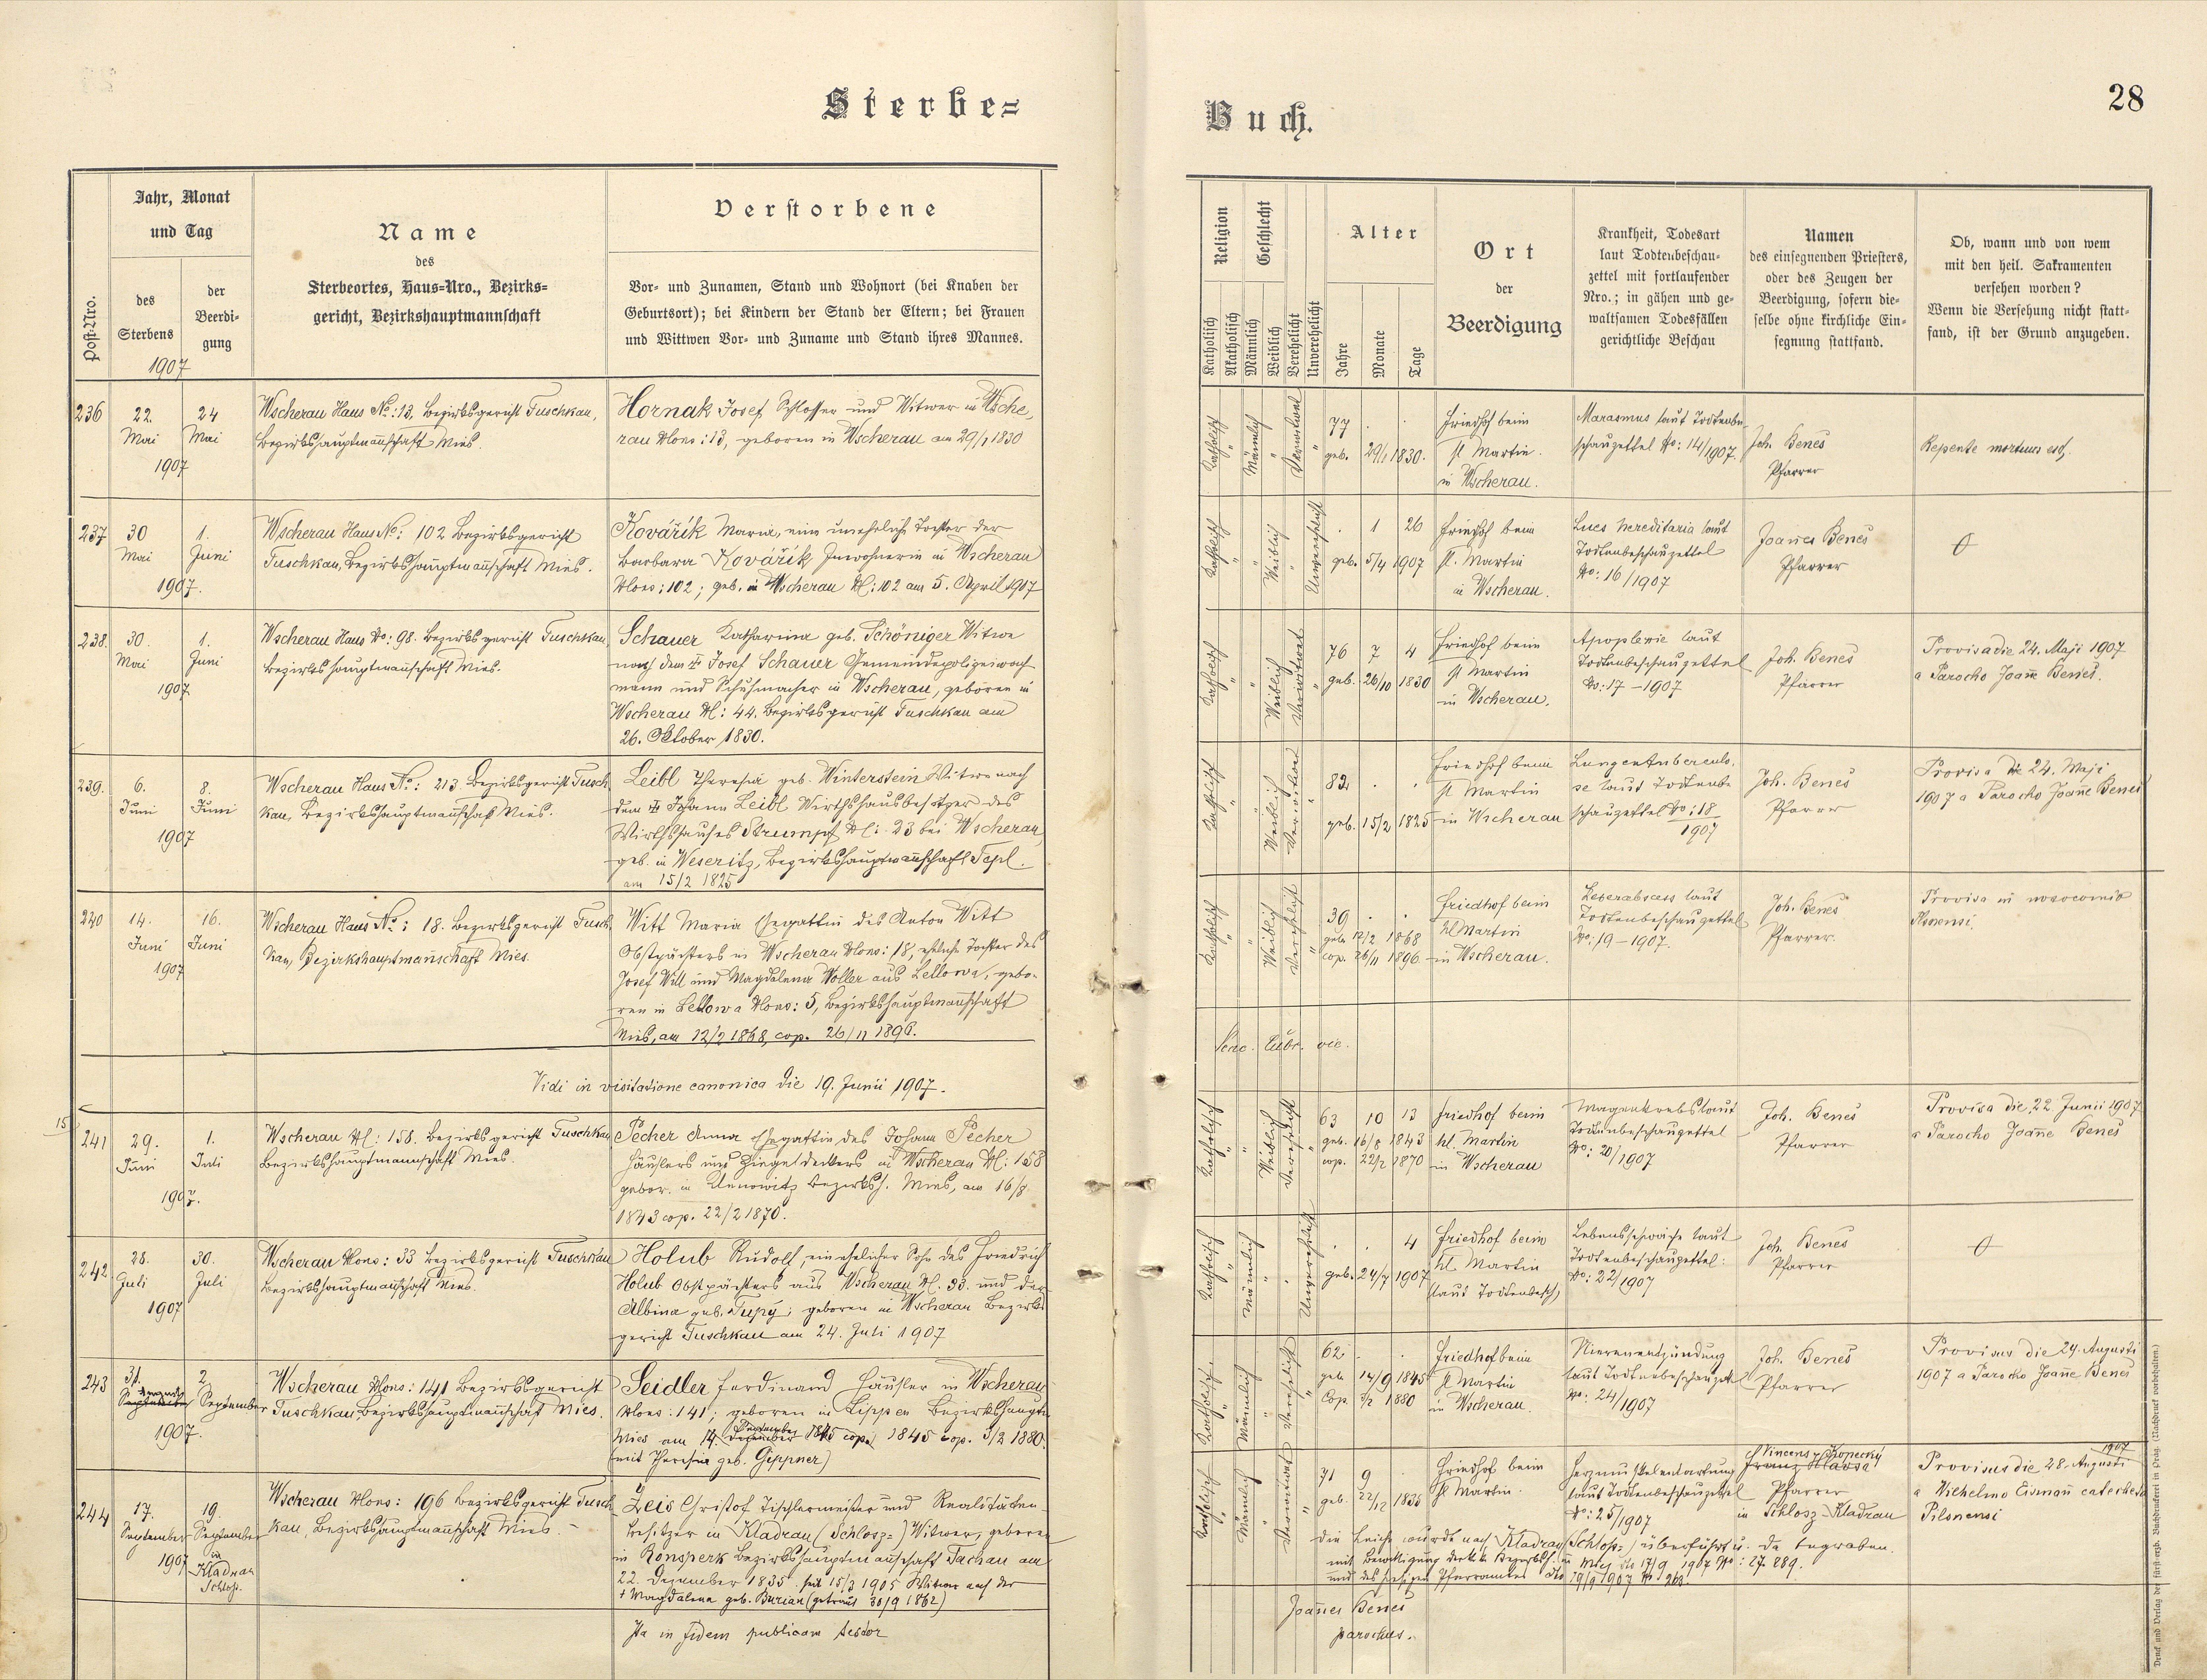 Sterbe=
Buch.
28
Post-Nro.
Jahr, Monat
und Tag
des
Sterbens
1907
der
Beerdi-
gung
Name
des
Sterbeortes, Haus-Nro., Bezirks-
gericht, Bezirkshauptmannschaft
Verstorbene
Vor- und Zunamen, Stand und Wohnort (bei Knaben der
Geburtsort); bei Kindern der Stand der Eltern; bei Frauen
und Wittwen Vor- und Zuname und Stand ihres Mannes.
Religion
Katholisch
Akatholisch
Geschlecht
Männlich
Weiblich
Verehelicht
Unverehelicht
Alter
Jahre
Monate
Tage
Ort
der
Beerdigung
Krankheit, Todesart
laut Todtenbeschau-
zettel mit fortlaufender
Nro.; in gähen und ge-
waltsamen Todesfällen
gerichtliche Beschau
Namen
des einsegnenden Priesters,
oder des Zeugen der
Beerdigung, sofern die-
selbe ohne kirchliche Ein-
segnung stattfand.
Ob, wann und von wem
mit den heil. Sakramenten
versehen worden?
Wenn die Versehung nicht statt-
fand, ist der Grund anzugeben.
236
22. Mai
1907
24 Mai
Wscherau Haus No: 13, Bezirksgericht Tuschkau,
Bezirkshauptmannschaft Mies.
Hornak Josef Schlosser und Witwer in Wsche,
rau Nro: 13, geboren in Wscherau am 29/1 1830
Katholisch
Männlich
Verwitwet
77
geb. 29/1 1830.
Friedhof beim
St Martin.
in Wscherau.
Marasmus laut Todtenbe
schauzettel No: 14/1907.
Joh. Beneš
Pfarrer
Repente mortuus est.
237
30 Mai
1907.
1. Juni
Wscherau Haus No: 102 Bezirksgericht
Tuschkau, Bezirkshauptmannschaft Mies.
Kovářík Maria, eine uneheliche Tochter der
Barbara Kovářík Inwohnerin in Wscherau
Nro: 102; geb. in Wscherau N: 102 am 5. April 1907
Katholisch
Weiblich
Unverehelicht
1 26
geb. 5/4 1907
Friedhof beim
St. Martin
in Wscherau.
Lues hereditaria laut
Todtenbeschauzettel
No: 16/1907
Joanes Beneš
Pfarrer
238.
30. Mai
1907
1. Juni
Wscherau Haus No: 98. Bezirksgericht Tuschkau,
Bezirkshauptmannschaft Mies.
Schauer Katharina geb. Schöniger Witwe
nach dem † Josef Schauer Gemeindepolizeiwach
mann und Schuhmacher in Wscherau, geboren in
Wscherau N: 44. Bezirksgericht Tuschkau am
26. Oktober 1830.
Katholisch
Weiblich
Verwitwet
76 7 4
geb. 26/10 1830
Friedhof beim
St Martin
in Wscherau.
Apoplexie laut
Todtenbeschauzettel
No: 17 – 1907
Joh. Beneš
Pfarrer
Provisa die 24. Maji 1907
a Parocho Joanne Beneš.
239.
6. Juni
1907
8. Juni
Wscherau Haus No: 213 Bezirksgericht Tusch
kau, Bezirkshauptmannschaft Mies.
Leibl Theresia geb. Winterstein Witwe nach
dem † Johann Leibl Wirthshausbesitzer des
Wirthshauses Strumpf N: 23 bei Wscherau,
geb. in Weseritz, Bezirkshauptmannschaft Tepl.
am 15/2 1825
Katholisch
Weiblich
Verwitwet
82.
geb. 15/2 1825
Friedhof beim
St Martin
in Wscherau
Lungentuberculo,
se laut Todtenbe
schauzettel No: 18
1907
Joh. Beneš
Pfarrer
Provisa die 24. Maji
1907 a Parocho Joanne Beneš
240
14. Juni
1907
16. Juni
Wscherau Haus No: 18. Bezirksgericht Tusch
kau, Bezirkshauptmannschaft Mies.
Witt Maria Ehegattin des Anton Witt
Obstpächters in Wscherau Nro: 18, eheliche Tochter des
Josef Will und Magdalena Woller aus Lellowa, gebo-
ren in Lellowa Nro: 5, Bezirkshauptmannschaft
Mies, am 12/2 1868, cop. 26/11 1896.
Katholisch
Weiblich
Verehelicht
39
geb. 12/2 1868
cop. 26/11 1896
Friedhof beim
hl Martin
in Wscherau.
Leberabscess laut
Todtenbeschauzettel
No: 19 – 1907.
Joh. Beneš
Pfarrer.
Provisa in nosocomio
Plsnensi.
Vidi in visitatione canonica die 19. Junii 1907.
vic.
15
241
29. Juni
1907.
1. Juli
Wscherau N: 158. Bezirksgericht Tuschkau
Bezirkshauptmannschaft Mies.
Pecher Anna Ehegattin des Johann Pecher
Häuslers und Ziegeldeckers in Wscherau N: 158
gebor. in Bezirksh. Mies, am 16/8
1843 cop. 22/2 1870.
Katholisch
Weiblich
Verehelicht
63 10 13
geb. 16/8 1843
cop. 22/2 1870
Friedhof beim
hl. Martin
in Wscherau
Magenkrebs laut
Todtenbeschauzettel
No: 20/1907
Joh. Beneš
Pfarrer
Provisa die 22 Junii 1907
a Parocho Joanne Beneš
242
28. Juli
1907
30. Juli
Wscherau Nro: 33 Bezirksgericht Tuschkau
Bezirkshauptmannschaft Mies.
Holub Rudolf, ein ehelicher Sohn des Friedrich
Holub Obstpächters aus Wscherau N. 33. und der
Albina geb. Tupý; geboren in Wscherau Bezirks
gericht Tuschkau am 24. Juli 1907
Katholisch
Männlich
Unverehelicht
4
geb. 24/7 1907
Friedhof beim
hl. Martin
(laut Todtenbesch)
Lebensschwäche laut
Todtenbeschauzettel:
No: 22/1907
Joh. Beneš
Pfarrer
243
31. Augusti
1907.
2. September
Wscherau Nro: 141 Bezirksgericht
Tuschkau, Bezirkshauptmannschaft Mies.
Seidler Ferdinand Häusler in Wscherau
Nro: 141; geboren in Lippen Bezirkshauptm
Mies am 14. September 1845 cop. 3/2 1880.
(mit Theresia geb. Gippner)
Katholisch
Männlich
Verehelicht
62
geb. 14/9 1845
Cop. 3/2 1880
Friedhof beim
St Martin
in Wscherau.
Nierenentzündung
laut Todtenbeschauzett
No: 24/1907
Joh. Beneš
Pfarrer
Provisus die 24. Augusti
1907 a Parocho Joanne Beneš
244
17. September
1907
19. September
in
Kladrau
Schloß.
Wscherau Nro: 196 Bezirksgericht Tusch
kau, Bezirkshauptmannschaft Mies. –
Zeis Christof Tischlermeister und Realitäten
besitzer in Kladrau (Schlosz=) Witwer, geboren
in Ronsperk Bezirkshauptmannschaft Tachau am
22. Dezember 1835. seit 15/3 1905 Witwer nach der
† Magdalena geb. Burian (getraut 30/9 1862)
Katholisch
Männlich
Verwitwet
71 9
geb. 22/12 1835
Friedhof beim
St Martin.
Herzmuskelentartung
laut Todtenbeschauzettel
No: 25/1907
Vincens Kopecký
Franz Hlavsa
Pfarrer
in Schlosz-Kladrau
Provisus die 28. Augusti 1907
a Wilhelmo Eisman catecheta
Pilsnensi
Die Leiche wurde nach Kladrau (Schlosz=) überführt u. da begraben.
mit Bewilligung der k.k. Bezirksh. in Mies dto 17/9 1907 No: 27.289.
und des hiesigen Pfarramtes dto 19/9 1907 No 263.
Ita in fidem publicam testor
Joannes Beneš
parochus.
Druck und Verlag der fürst-erzb. Buchdruckerei in Prag. (Nachdruck vorbehalten.)